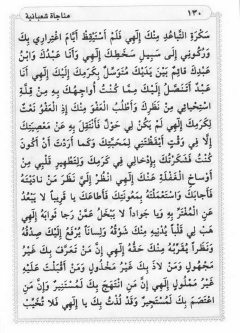 ١٣٠ مناجاة شعبانية
سَكْرَةِ التَّبَاعُدِ مِنْكَ إِلَهِي فَلَمْ أَسْتَيْقِظْ أَيَّامَ اغْتِرَارِي بِكَ
وَرُكُونِي إِلَى سَبِيلِ سَخَطِكَ إِلَهِي وَأَنَا عَبْدُكَ وَابْنُ
عَبْدِكَ قَائِمٌ بَيْنَ يَدَيْكَ مُتَوَسِّلٌ بِكَرَمِكَ إِلَيْكَ إِلَهِي أَنَا
عَبْدٌ أَتَنَصَّلُ إِلَيْكَ مِمَّا كُنْتُ أُوَاجِهُكَ بِهِ مِنْ قِلَّةِ
اسْتِحْيَائِي مِنْ نَظَرِكَ وَأَطْلُبُ الْعَفْوَ مِنْكَ إِذِ الْعَفْوُ نَعْتٌ
لِكَرَمِكَ إِلَهِي لَمْ يَكُنْ لِي حَوْلٌ فَأَنْتَقِلَ بِهِ عَنْ مَعْصِيَتِكَ
إِلَّا فِي وَقْتٍ أَيْقَظْتَنِي لِمَحَبَّتِكَ وَكَمَا أَرَدْتَ أَنْ أَكُونَ
كُنْتُ فَشَكَرْتُكَ بِإِدْخَالِي فِي كَرَمِكَ وَلِتَطْهِيرِ قَلْبِي مِنْ
أَوْسَاخِ الْغَفْلَةِ عَنْكَ إِلَهِي انْظُرْ إِلَيَّ نَظَرَ مَنْ نَادَيْتَهُ
فَأَجَابَكَ وَاسْتَعْمَلْتَهُ بِمَعُونَتِكَ فَأَطَاعَكَ يَا قَرِيباً لَا يَبْعُدُ
عَنِ الْمُغْتَرِّ بِهِ وَيَا جَوَاداً لَا يَبْخَلُ عَمَّنْ رَجَا ثَوَابَهُ إِلَهِي
هَبْ لِي قَلْباً يُدْنِيهِ مِنْكَ شَوْقُهُ وَلِسَاناً يُرْفَعُ إِلَيْكَ صِدْقُهُ
وَنَظَراً يُقَرِّبُهُ مِنْكَ حَقُّهُ إِلَهِي إِنَّ مَنْ تَعَرَّفَ بِكَ غَيْرُ
مَجْهُولٍ وَمَنْ لَاذَ بِكَ غَيْرُ مَخْذُولٍ وَمَنْ أَقْبَلْتَ عَلَيْهِ
غَيْرُ مَمْلُولٍ إِلَهِي إِنَّ مَنِ انْتَهَجَ بِكَ لَمُسْتَنِيرٌ وَإِنَّ مَنِ
اعْتَصَمَ بِكَ لَمُسْتَجِيرٌ وَقَدْ لُذْتُ بِكَ يَا إِلَهِي فَلَا تُخَيِّبْ